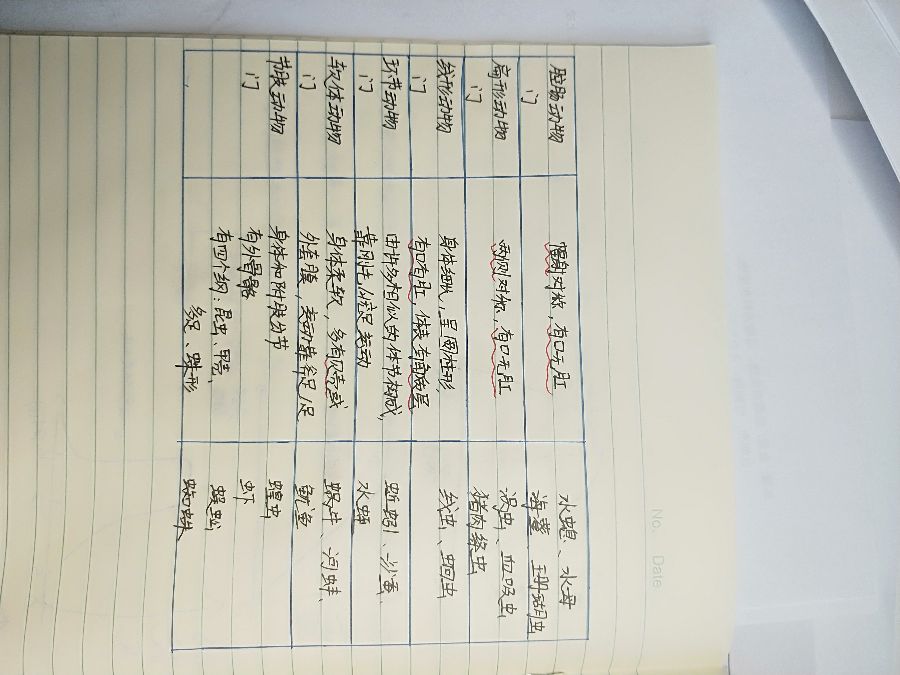 No.
Date
腔肠动物
门
辐射对称，有口无肛
水螅、水母
海葵、珊瑚虫
扁形动物
门
两侧对称，有口无肛
涡虫、血吸虫
猪肉绦虫
线形动物
门
身体细长，呈圆柱形，
有口有肛，体表有角质层
线虫、蛔虫
环节动物
门
由许多相似的体节构成，
靠刚毛/疣足运动
蚯蚓、沙蚕、
水蛭
软体动物
门
身体柔软，多有贝壳或
外套膜，运动靠斧足/足
蜗牛、河蚌、
鱿鱼
节肢动物
门
身体和附肢分节
有外骨骼
有四个纲：昆虫、甲壳、
多足、蛛形
蝗虫
虾
蜈蚣
蜘蛛